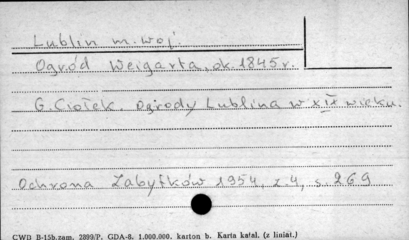 Lublin m. woj.
Ogród Weigarta, ok. 1845 r.
G. Ciołek. Ogrody Lublina w XIX wieku.
Ochrona Zabytków 1954, z. 4, s. 269
CWD B-15b.zam. 2899/P. GDA-8. 1.000.000. karton b. Karta katal. (z liniat.)